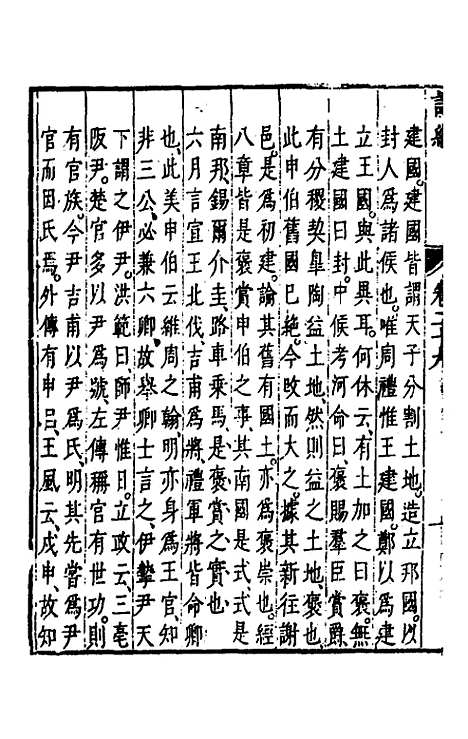 建國。建國皆謂天子分割土地。造立邦國。以
封人爲諸侯也。唯周禮惟王建國。鄭以爲建
立王國。與此異耳。何休云。有土加之曰褒。無
土建國曰封。中候考河命曰。褒賜羣臣。賞爵
有分。稷契皐陶益土地。然則益之土地。褒也。
此申伯舊國已絶。今改而大之。據其新往謝
邑。是爲初建。論其舊有國土。亦爲褒崇也。經
八章皆是褒賞申伯之事。其南國是式。式是
南邦。錫爾介圭。路車乗馬。是褒賞之實也。
六月言宣王北伐。吉甫爲將。禮軍將皆命卿
也。此美申伯云。維周之翰。明亦身爲王官。知
非三公。必兼六卿。故舉卿士言之。伊摯尹天
下。謂之伊尹。洪範曰。師尹惟日。立政云。三亳
阪尹。楚官多以尹爲號。左傳稱官有世功。則
有官族。今尹吉甫以尹爲氏。明其先嘗爲尹
官。而因氏焉。外傳有申呂。王風云。戍申。故知